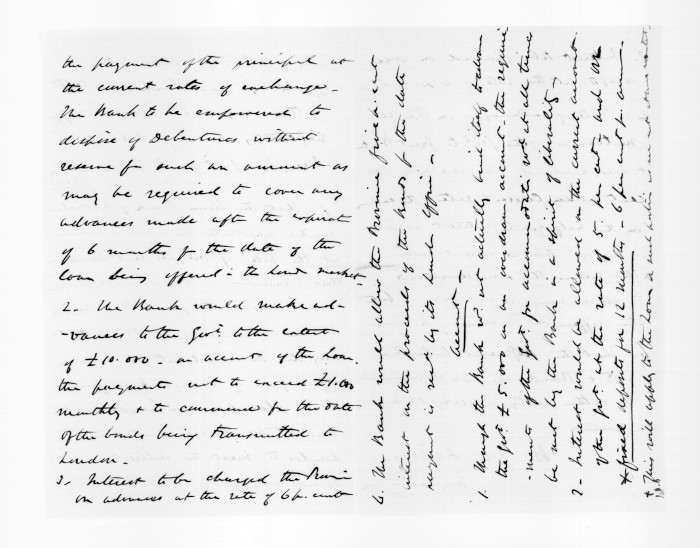 the payment of the principal at
the current rates of exchange -
The Bank to be empowered to
dispose of Debentures, without
reserve for such an amount as
may be required to cover any
advances made after the expirat
of 6 months fr the date of the
loan being offered in the Lond market
2. The Bank would make ad-
-vances to the Govt to the extent
of £10.000 - on account of the loan
the payment not to exceed £1.000
monthly & to commence fr the date
of the bonds being transmitted to
London -
3. Interest to be charged the
on advances at the rate of 6 p. cent
4. The Bank would allow the Provinc five p. cent
interest on the proceeds of the bonds fr the date
receipt is recd by its London Office -
Account -
1. Though the Bank wd not actually bind itself to allow
the Govt £5.000 on an overdrawn account the require
-ments of the Govt for accommodation wd at all times
be met by the Bank in a spirit of liberality -
2 - Interest would be allowed on the current account
of the Govt at the rate of 5 per cent, and on
+ fixed deposits for 12 months - 6 per cent per ann -
+ This will apply to the Loan